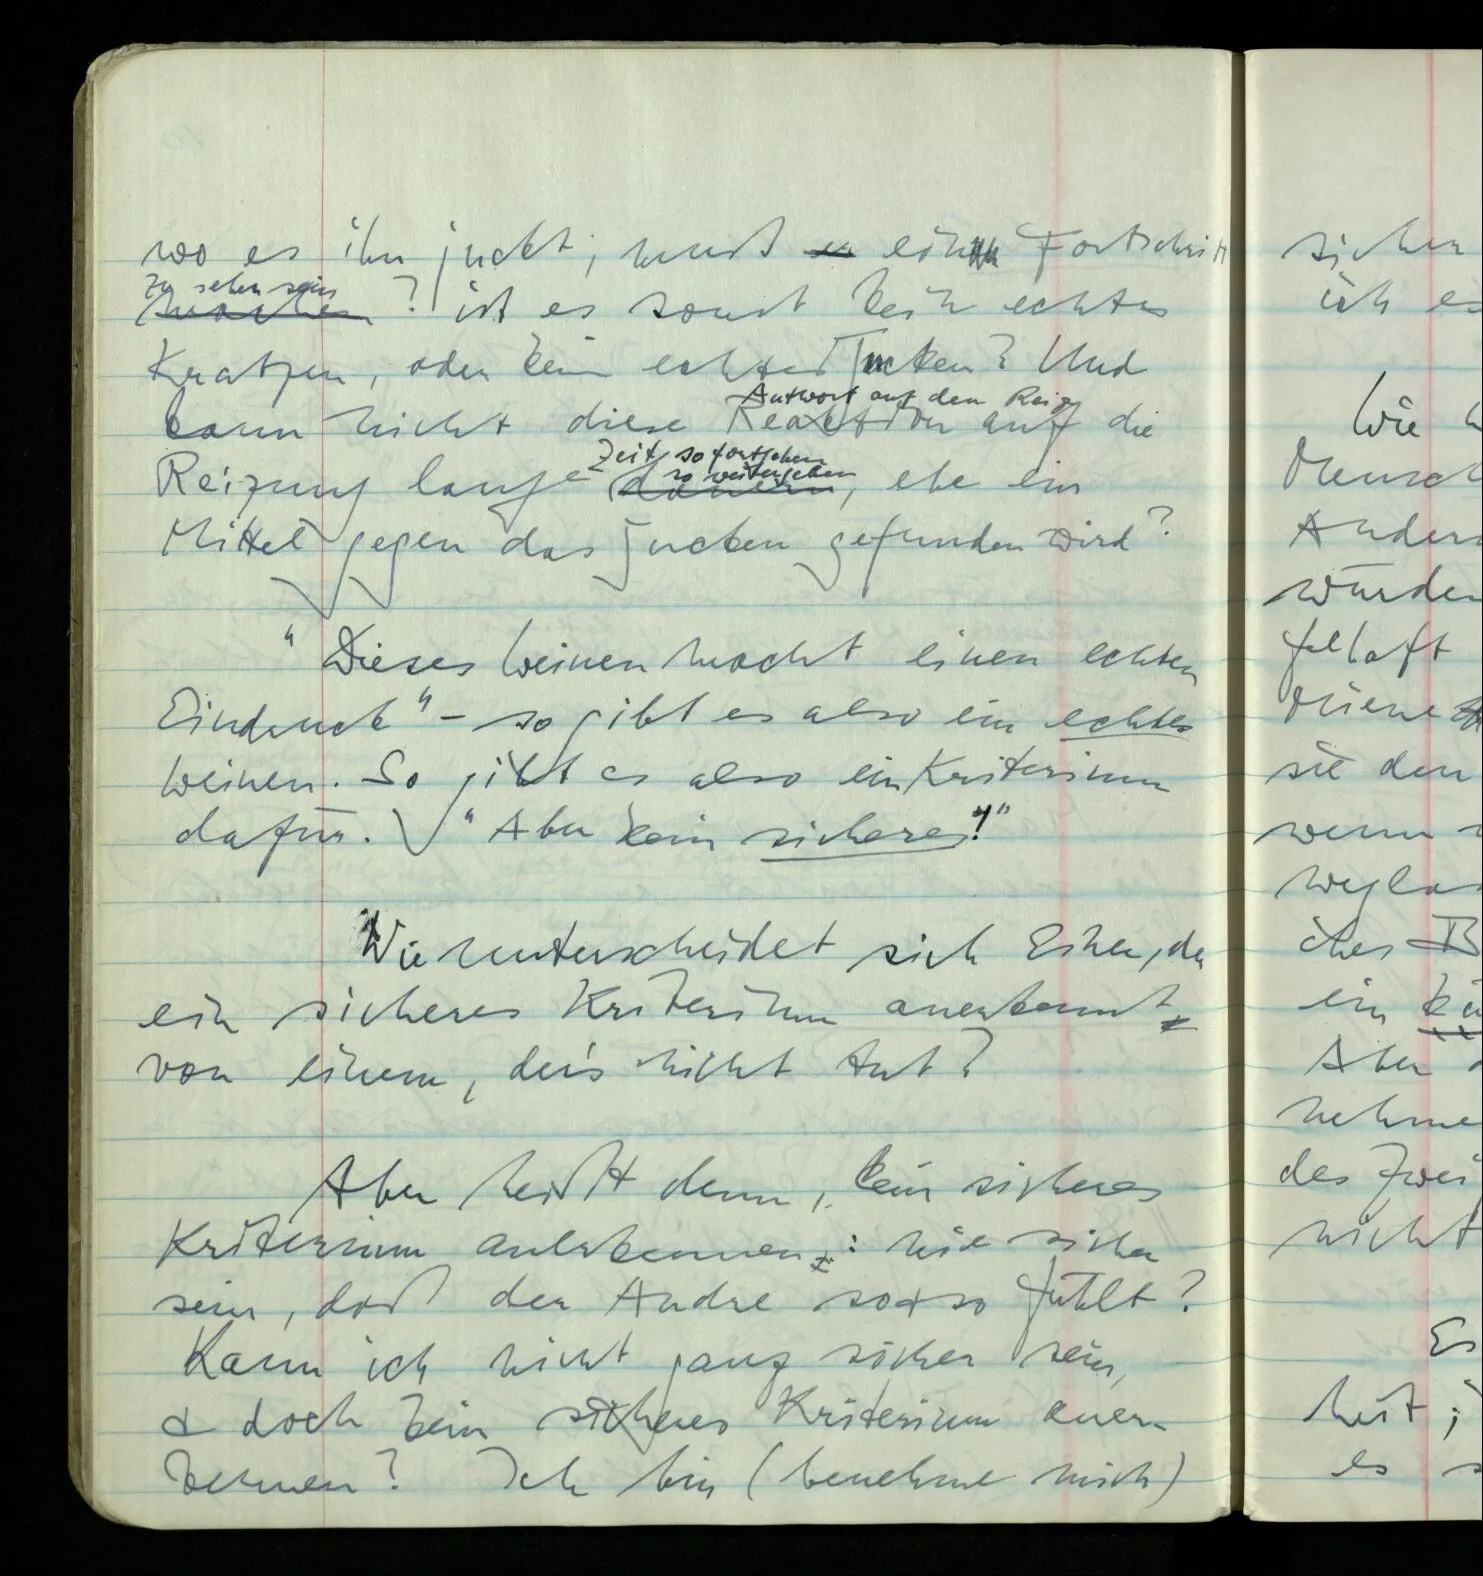 wo es ihn juckt, muß er ein Fortschritt
zu sehen sein
machen? ist es sonst kein echtes
Kratzen, oder kein echtes Jucken? Und
Antwort auf den Reiz
kann nicht diese Reaction auf die
Zeit so fortgehen
so weitergehen
Reizung lange dauern, ehe ein
Mittel gegen das Jucken gefunden wird?
"Dieses Weinen macht einen echten
Eindruck" – so gibt es also ein echtes
Weinen. So gibt es also ein Kriterium
dafür. "Aber kein sicheres!"
Wie unterscheidet sich Einer, der
ein sicheres Kriterium anerkennt
von einem, der's nicht tut?
Aber heißt denn, kein sicheres
Kriterium anerkennen: nie sicher
sein, daß der Andre so & so fühlt?
Kann ich nicht ganz sicher sein,
& doch kein sicheres Kriterium aner-
kennen? Ich bin (benehme mich)
sicher
ich
Wie
Mensch
Andern
würden
felhaft
Miene
sie den
wenn
ein
Aber
nehme
des Zwei
nicht
Es
heit;
es